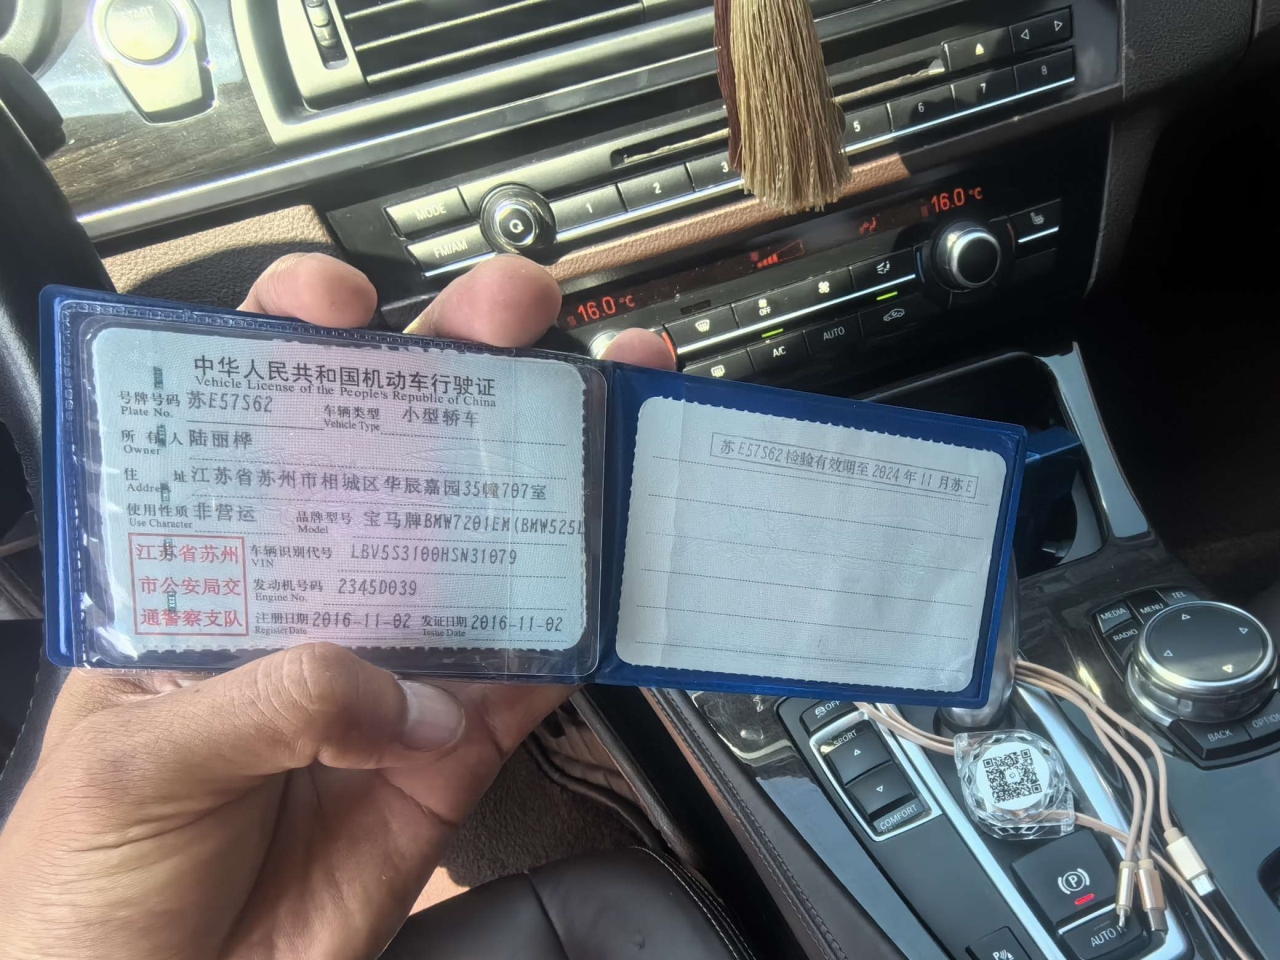 START
MODE
FM/AM
1
2
3
5
6
7
8
16.0 °C
16.0 °C
OFF
A/C
AUTO
中华人民共和国机动车行驶证
Vehicle License of the People's Republic of China
号牌号码 苏E57S62 车辆类型 小型轿车
Plate No. Vehicle Type
所有人 陆丽桦
Owner
住址 江苏省苏州市相城区华辰嘉园35幢707室
Address
使用性质 非营运 品牌型号 宝马牌BMW7201EM(BMW525L
Use Character Model
江苏省苏州
市公安局交
通警察支队
车辆识别代号 LBV5S3100HSN31079
VIN
发动机号码 2345D039
Engine No.
注册日期 2016-11-02 发证日期 2016-11-02
Register Date Issue Date
苏E57S62检验有效期至2024年11月苏E
MEDIA
MENU
TEL
RADIO
BACK
OPTION
OFF
SPORT
COMFORT
P
AUTO